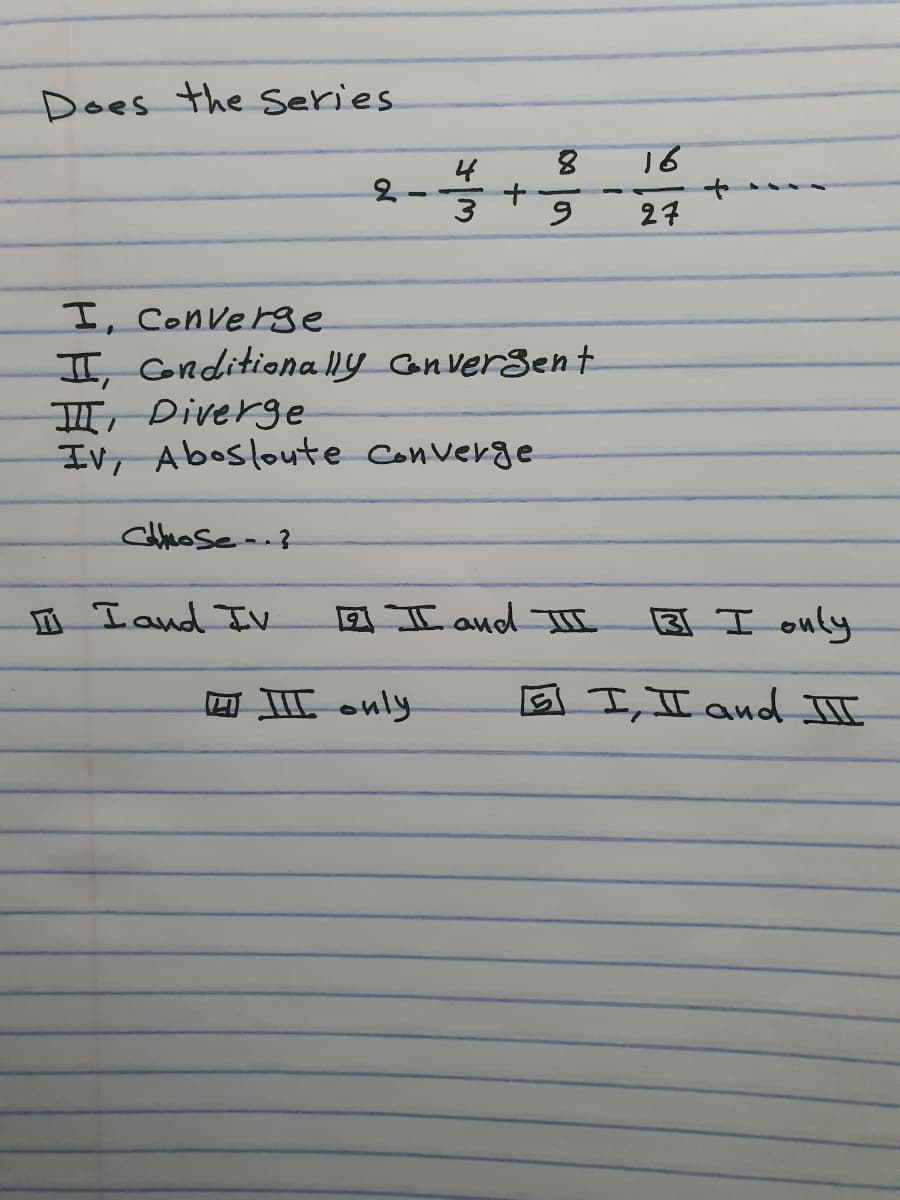 Does the series
2 - 4/3 + 8/9 - 16/27 + ....
I, Converge
II, Conditionally Convergent
III, Diverge
IV, Abosloute Converge
Choose -..?
[1] I and IV [2] II and III [3] I only
[4] III only [5] I, II and III